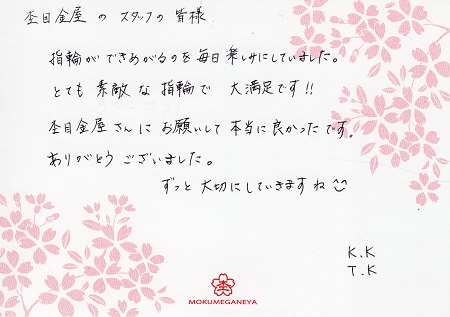 杢目金屋 の スタッフの 皆様
指輪ができあがるのを毎日楽しみにしていました。
とても 素敵 な 指輪で 大満足です!!
杢目金屋さんに お願いして 本当に 良かったです。
ありがとう ございました。
ずっと 大切に していきますね
K.K
T.K
杢
MOKUMEGANEYA